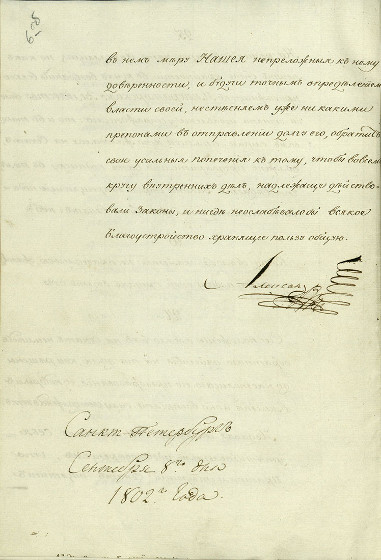 въ немъ мѣру Нашея непреложныя къ нему
довѣренности, и будучи точнымъ опредѣленіемъ
власти своей, нестѣсняемъ уже никакими
препонами въ отправленіи долга его, обратитъ
свои усильныя попеченія къ тому, чтобъ во всемъ
кругу внутреннихъ дѣлъ, надлежаще дѣйство-
вали Законы, и нигдѣ неослабѣвало бы всякое
благоустройство хранящее пользу общую.
Александръ
Санктъ Петербургъ
Сентября 8го дня
1802го Года.